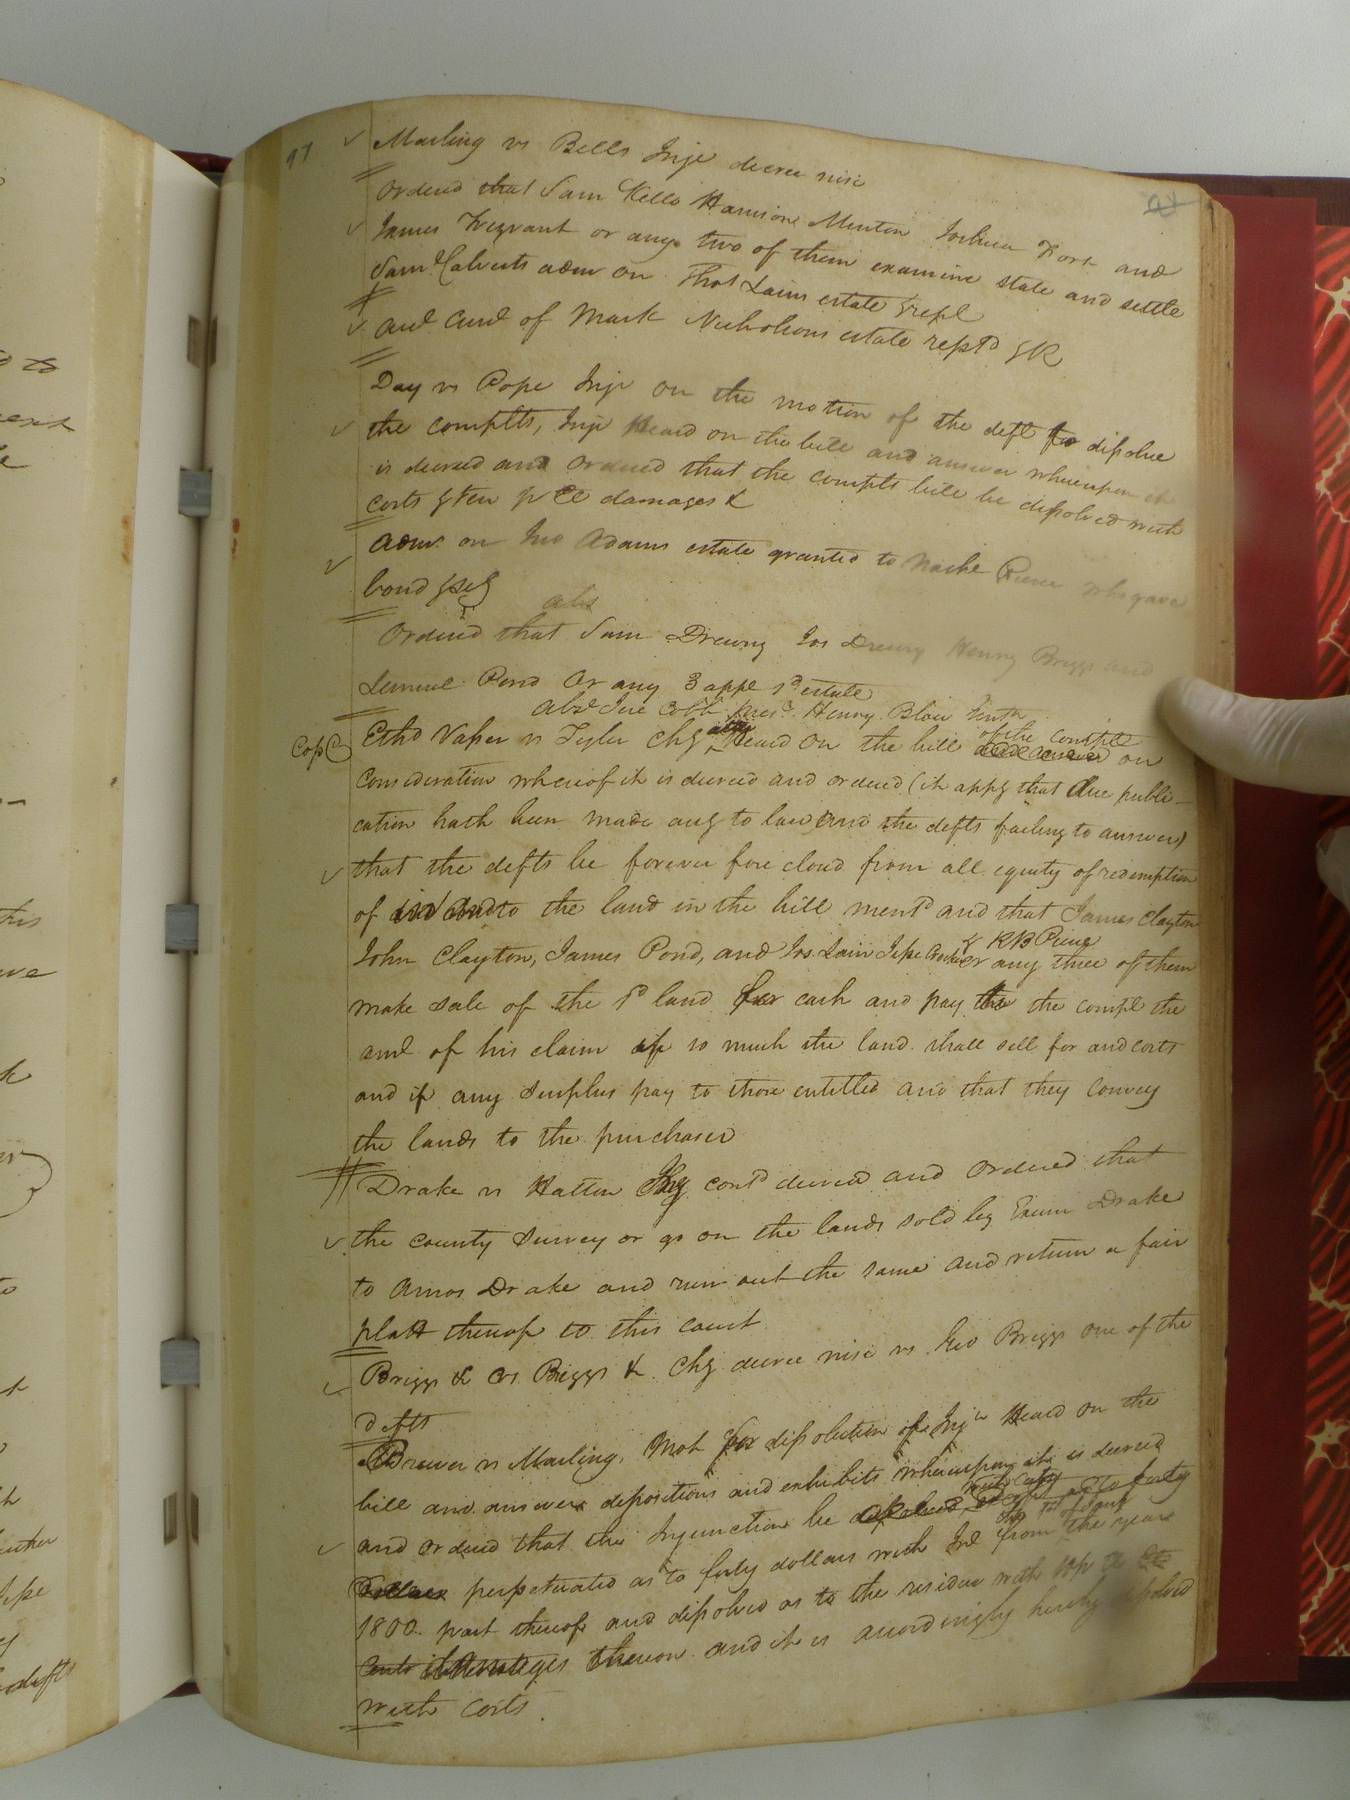 97
Marling vs Bells Inje decree nisi
Ordered that Sam Kello Harrison Minton Joshua Fort and
James Trezvant or any two of them examine state and settle
Saml Calverts adm on Thos Lains estate & repl
and Curl of Mark Nicholsons estate reptd & R
Day vs Pope Inje on the motion of the deft to dissolve
the complts, Inje Heard on the bill and answer whereupon it
is decreed and ordered that the compts bill be dissolved with
costs & ten p Ct damages &
Adm on Jno Adams estate granted to Pierce who gave
bond & sey
abs
Ordered that Sam Drewry Jos Drewry Henry Briggs and
Lemuel Pond Or any 3 appe sd estate
Absd Jere Cobb presd Henry Blow Gentn
Cops
Ethd Vaser vs Tyler Chy Heard on the bill and answer on
of the comple
consideration whereof it is decreed and ordered (it appg that due publi-
cation hath been made aug to law and the defts failing to answer)
that the defts be forever fore closd from all equity of redemption
of in and to the land in the bill mentd and that James Clayton
John Clayton, James Pond, and Jos. Lain or any three of them
& RB Pierce
make sale of the sd land for cash and pay the the compl the
amt of his claim if so much the land shall sell for and costs
and if any surplus pay to those entitled and that they convey
the lands to the purchaser
Drake vs Hatton contd decreed and ordered that
the county survey or go on the lands sold by Exum Drake
to Amos Drake and run out the same and return a fair
platt thereof to this court
Briggs & vs Briggs & Chy decree nisi vs Geo Briggs one of the
defts
Brewer vs Marling, Mot for dissolution of Injn Heard on the
bill and answers depositions and exhibits whereupon it is decreed
and ordered that the Injunction be dissolved, as to forty
Dollars perpetuated as to forty dollars with Int from the year
1800 part thereof and dissolved as to the residue with
damages thereon and it is accordingly hereby dissolved
with costs.